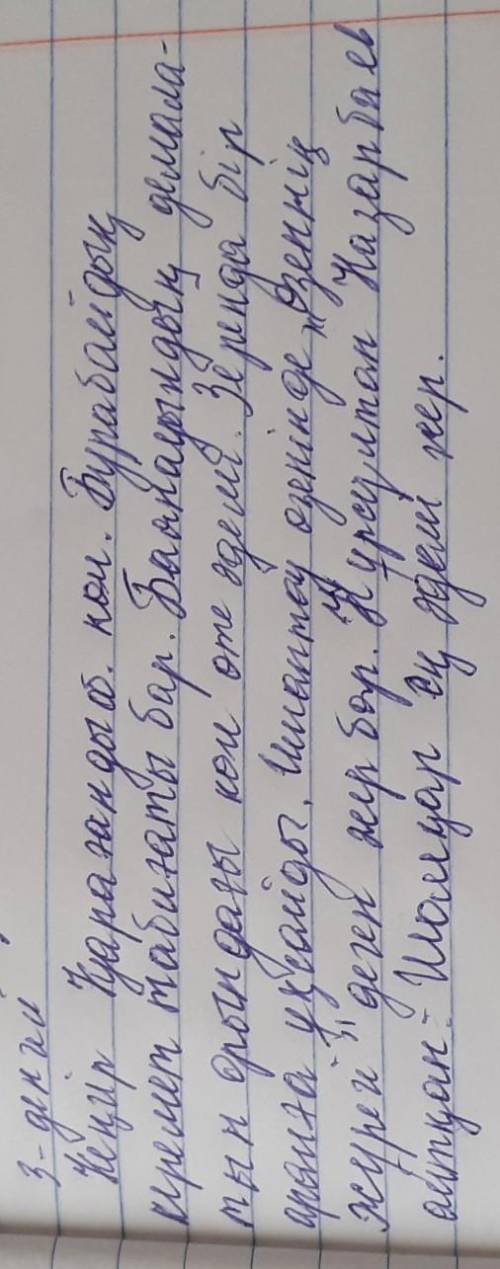 3-деңгей
Кеңгір Қарағандыоб. көл. Бурабайдың
керемет табиғаты бар. Баянауылдың демала-
тын орындағы көл өте әдемі. Зеренда бір
аралға ұқсайды. Имантау өзенінде „Өзеннің
жүрегі" деген жер бар. Нұрсұлтан Назарбаев
айтқан: Шалқар ең әдемі жер.